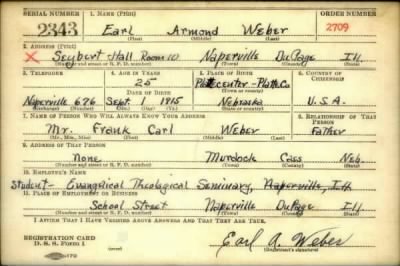 SERIAL NUMBER 1. NAME (Print) ORDER NUMBER
2343 Earl Armond Weber 2709
(First) (Middle) (Last)
2. ADDRESS (Print)
X Seybert Hall Room 10 Naperville DuPage Ill
(Number and street or R. F. D. number) (Town) (County) (State)
3. TELEPHONE 4. AGE IN YEARS 5. PLACE OF BIRTH 6. COUNTRY OF CITIZENSHIP
25 Platte Co
DATE OF BIRTH
Naperville 676 Sept. 1915 Nebraska U.S.A.
(Exchange) (Number) (Mo.) (Day) (Yr.) (State or country)
7. NAME OF PERSON WHO WILL ALWAYS KNOW YOUR ADDRESS 8. RELATIONSHIP OF THAT PERSON
Mr. Frank Carl Weber Father
(Mr., Mrs., Miss) (First) (Middle) (Last)
9. ADDRESS OF THAT PERSON
None Murdock Cass Neb.
(Number and street or R. F. D. number) (Town) (County) (State)
10. EMPLOYER'S NAME
Student - Evangelical Theological Seminary, Naperville, Ill
11. PLACE OF EMPLOYMENT OR BUSINESS
School Street Naperville DuPage Ill
(Number and street or R. F. D. number) (Town) (County) (State)
I AFFIRM THAT I HAVE VERIFIED ABOVE ANSWERS AND THAT THEY ARE TRUE.
REGISTRATION CARD
D. S. S. Form 1 Earl A. Weber
(Registrant's signature)